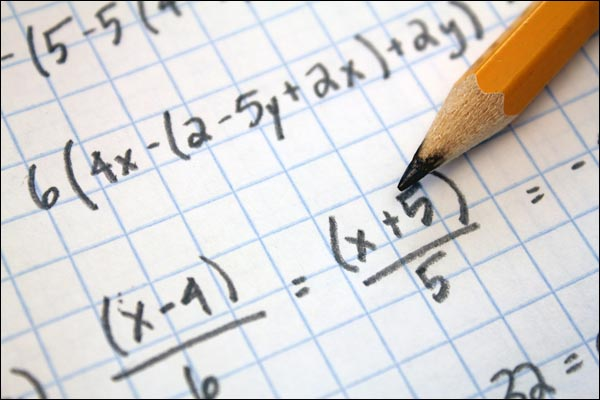 -(5-5(4
6(4x-(2-5y+2x)+2y)
(x-4)/6 = (x+5)/5 = -
) 22 =